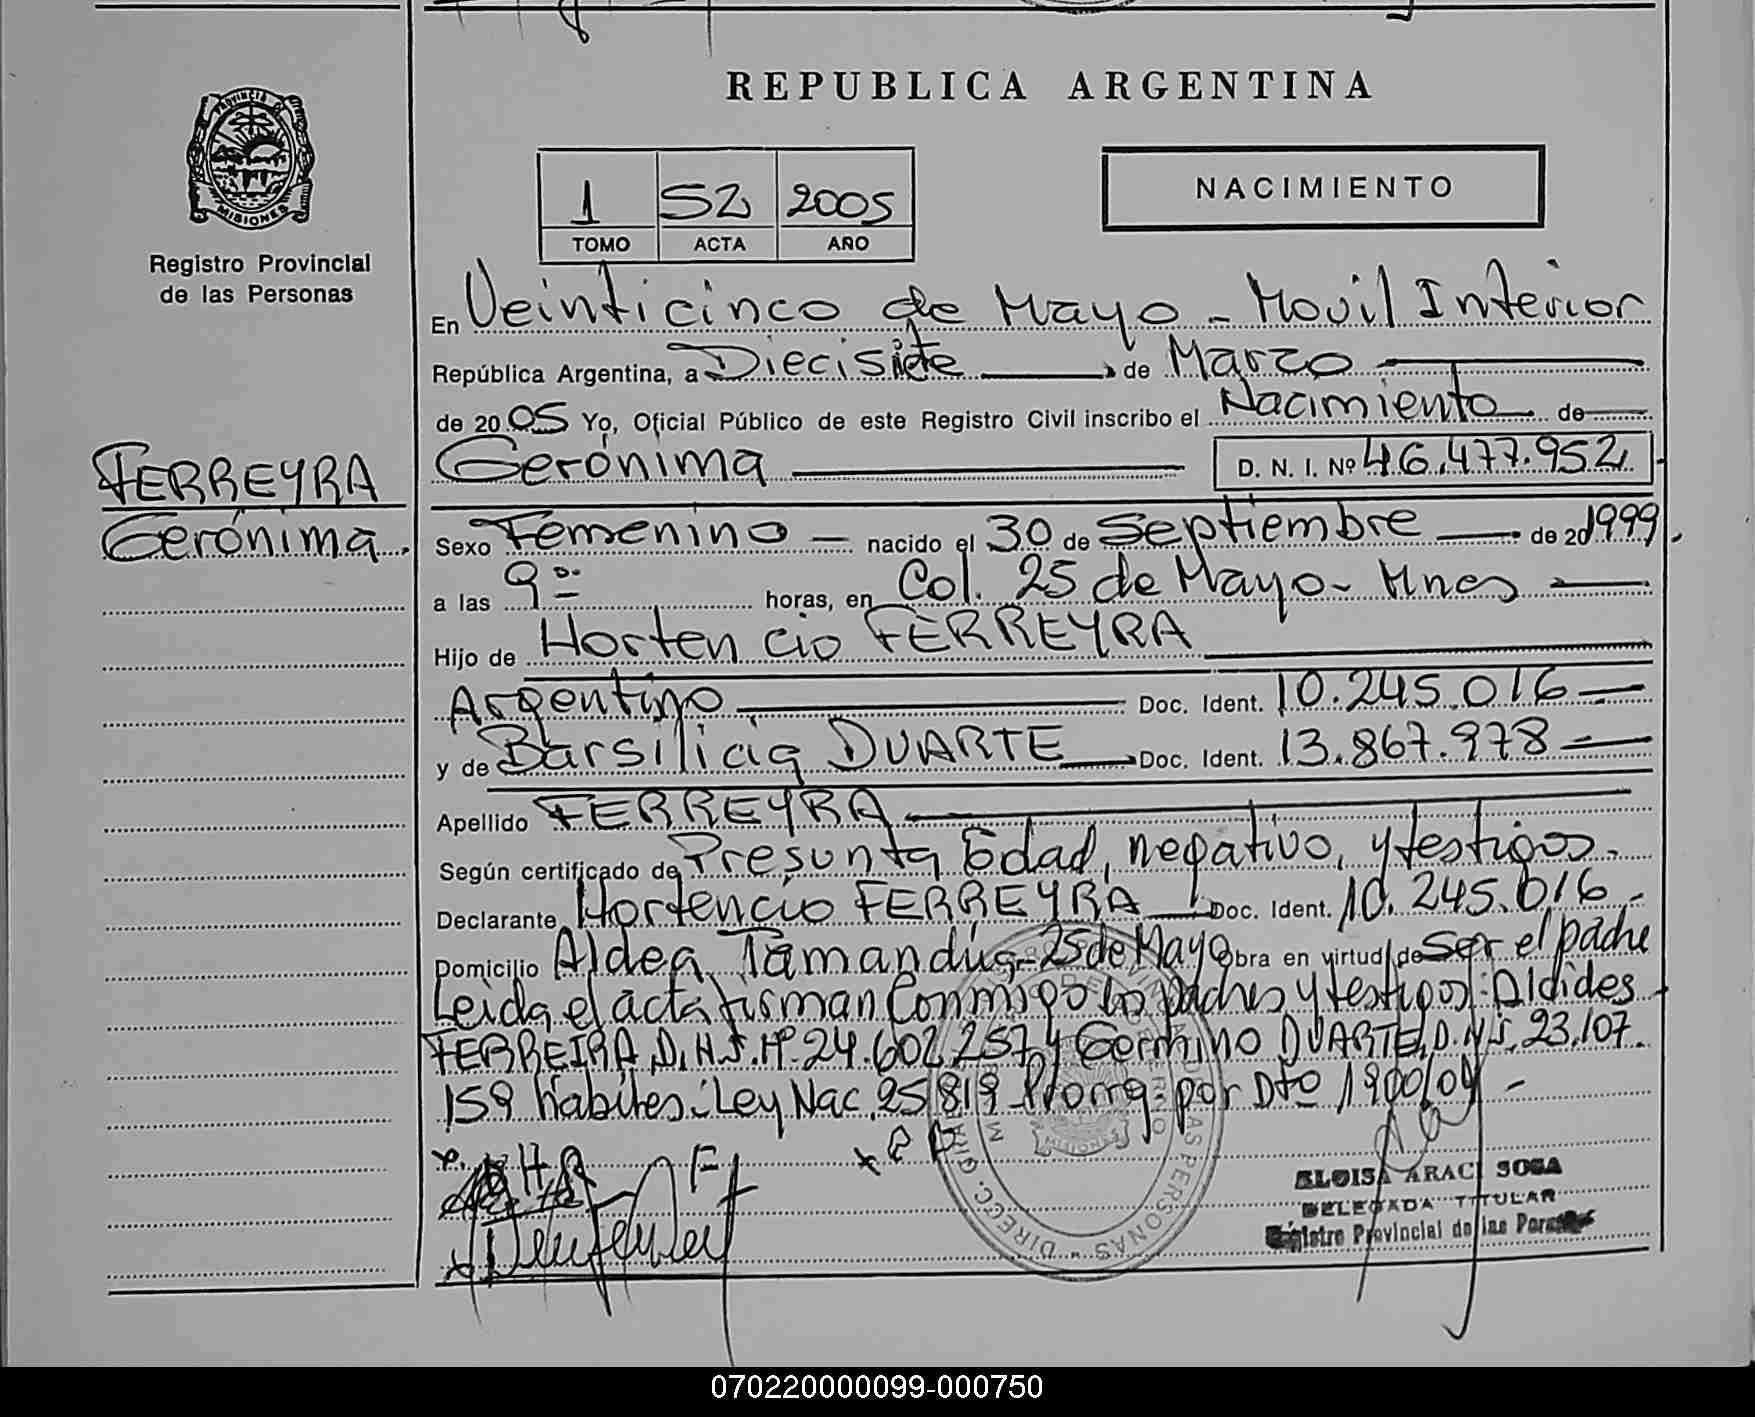 REPUBLICA ARGENTINA
PROVINCIA DE MISIONES
Registro Provincial
de las Personas
1 52 2005
TOMO ACTA AÑO
NACIMIENTO
En Veinticinco de Mayo - Movil Interior
República Argentina, a Diecisiete de Marzo
de 2005 Yo, Oficial Público de este Registro Civil inscribo el Nacimiento de
FERREYRA
Gerónima
Gerónima D. N. I. Nº 46.477.952
Sexo Femenino nacido el 30 de Septiembre de 20 1999.
a las 9 horas, en Col. 25 de Mayo - Mnes
Hijo de Hortencio FERREYRA
Argentino Doc. Ident. 10.245.016
y de Barsilicia DUARTE Doc. Ident. 13.867.978
Apellido FERREYRA
Según certificado de Presunta Edad, negativo, y testigos.
Declarante Hortencio FERREYRA Doc. Ident. 10.245.016
Domicilio Aldea Tamandúa - 25 de Mayo Obra en virtud de Ser el padre
Leida el acta firman Conmigo los padres y testigos: Alcides
FERREIRA D.N.I. Nº 24.602.257 y Germino DUARTE, D.N.I. 23.107.
159 habiles. Ley Nac. 25819 Prorrg. por Dto 1900/04
H F
ELOISA ARACI SOSA
DELEGADA TITULAR
Registro Provincial de las Personas
070220000099-000750